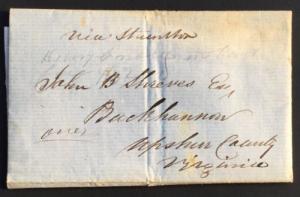 via Staunton
John B Shreves Esq
Buckhannon
Upshur County
Virginia